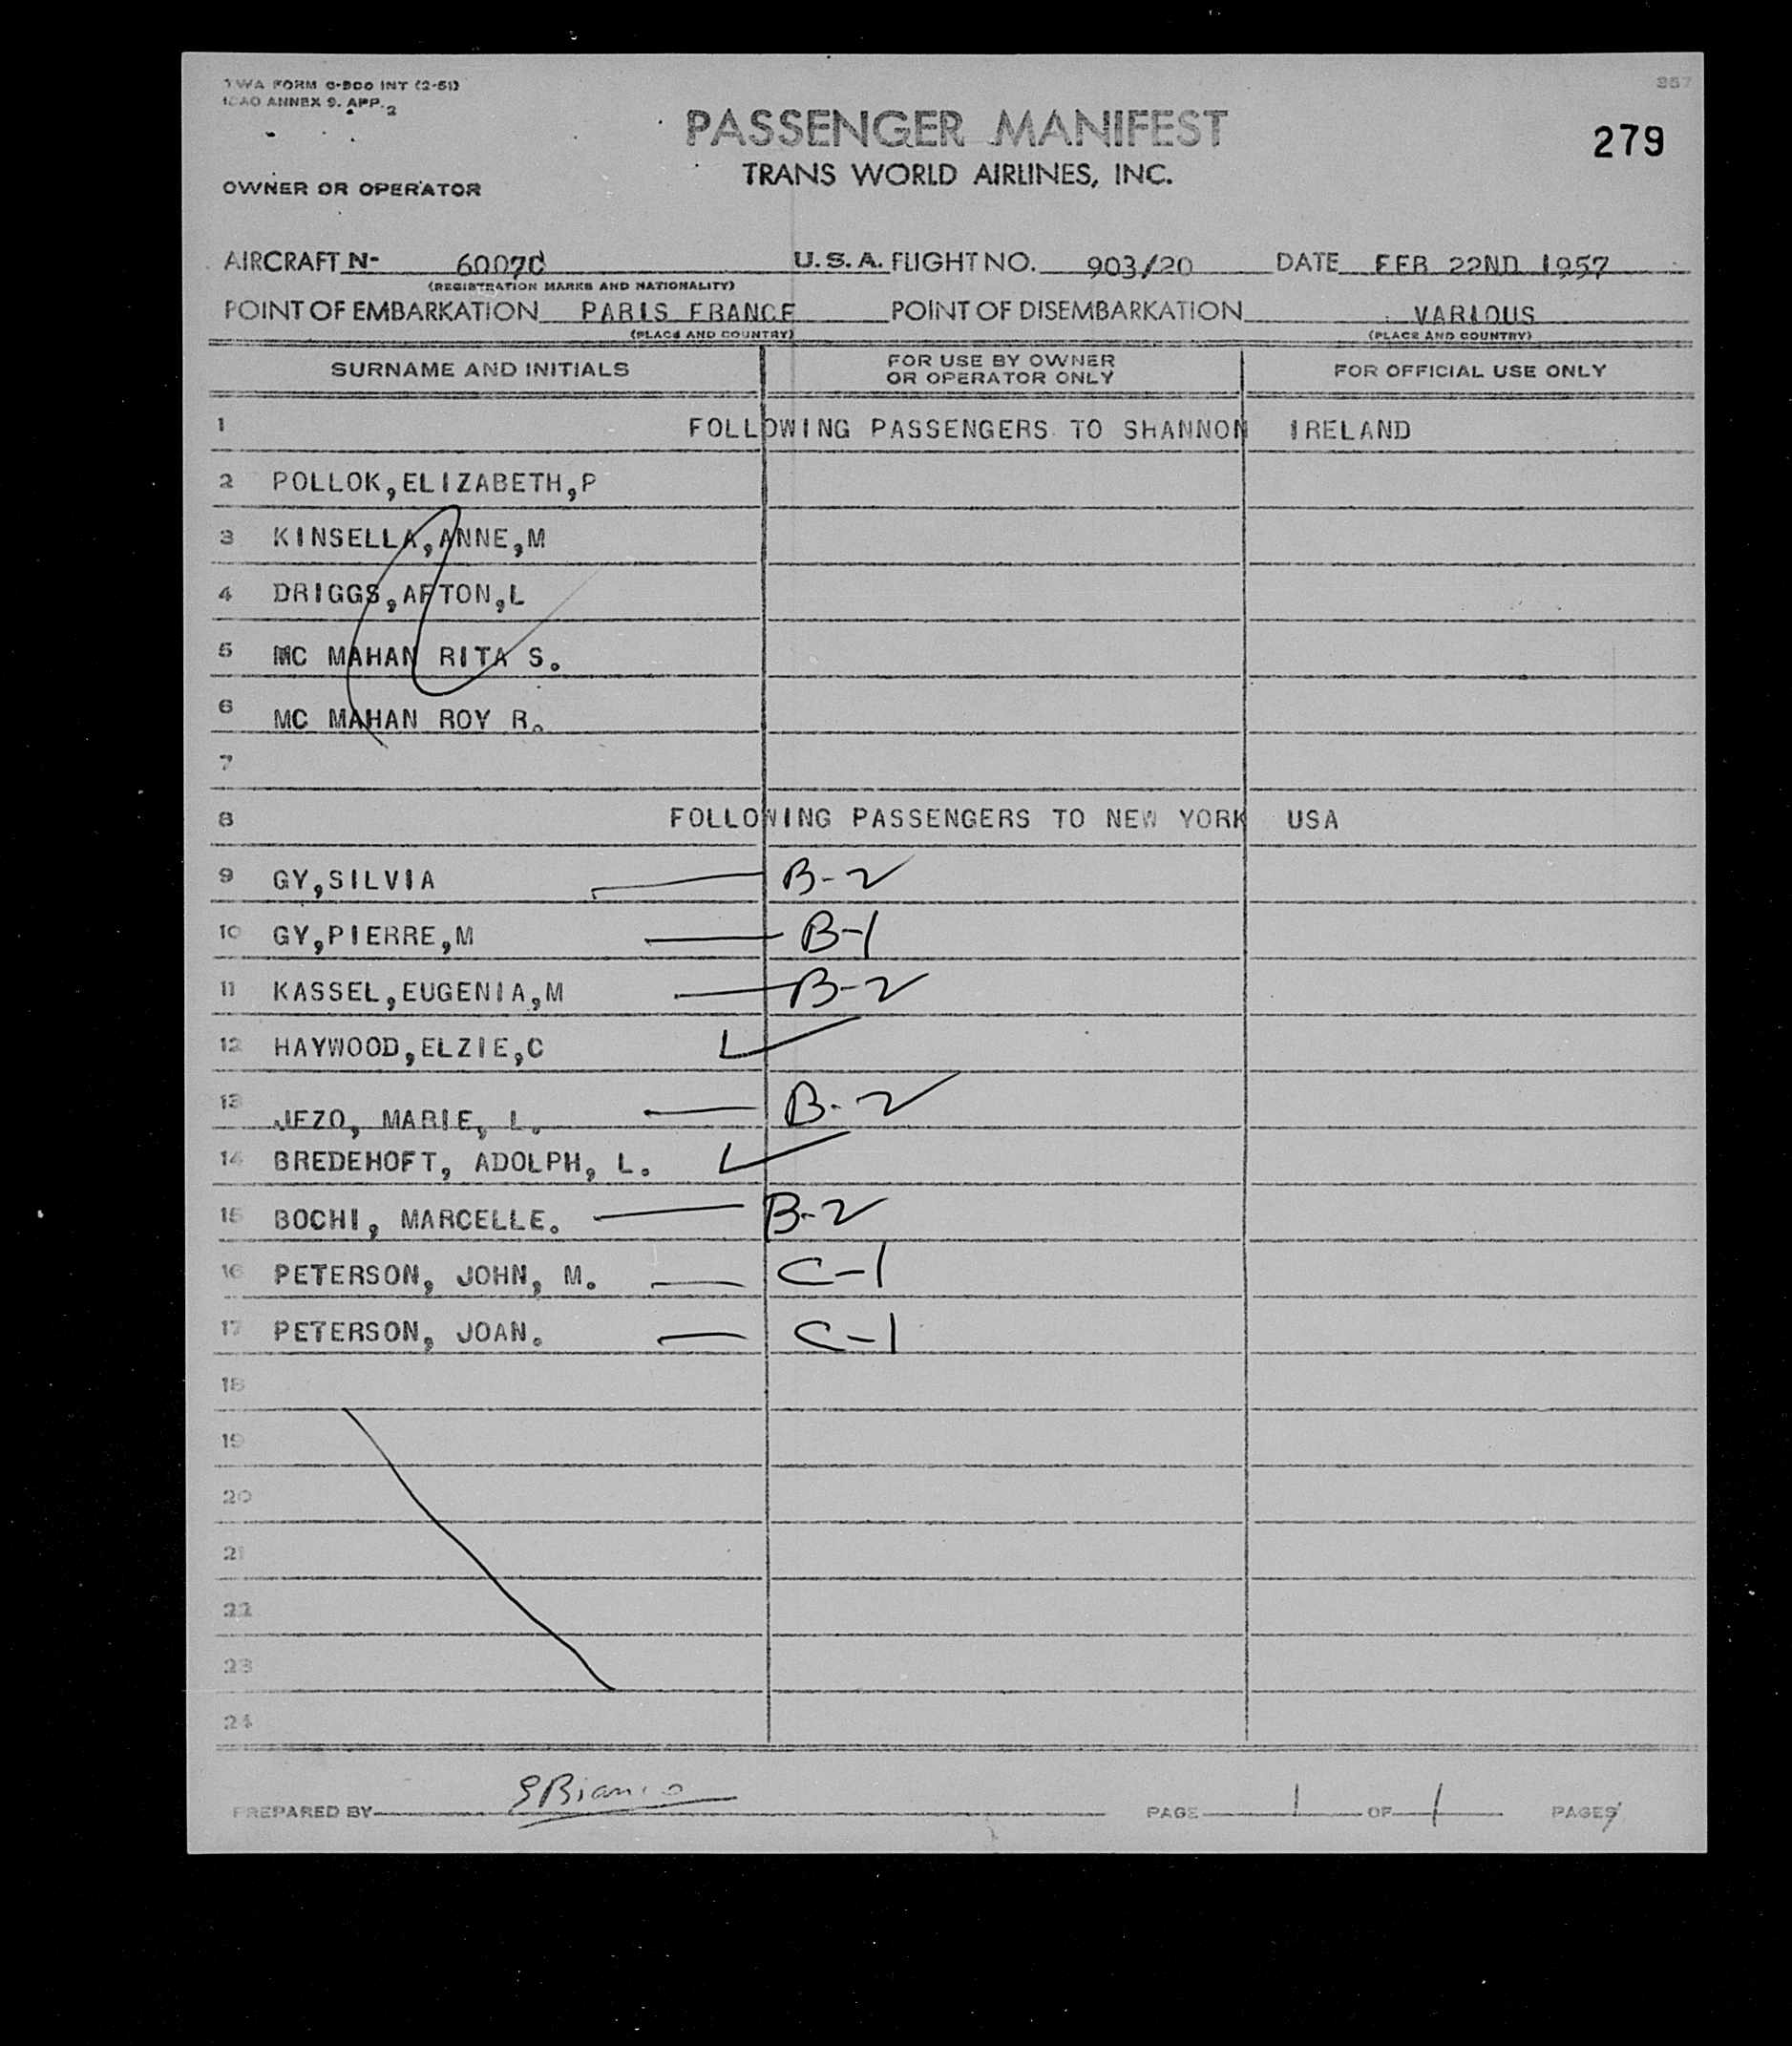 TWA FORM O-900 INT (2-51)
ICAO ANNEX 9. APP. 2
357
PASSENGER MANIFEST
279
TRANS WORLD AIRLINES, INC.
OWNER OR OPERATOR
AIRCRAFT N- 6007C U.S.A. FLIGHT NO. 903/20 DATE FEB 22ND 1957
(REGISTRATION MARKS AND NATIONALITY)
POINT OF EMBARKATION PARIS FRANCE POINT OF DISEMBARKATION VARIOUS
(PLACE AND COUNTRY) (PLACE AND COUNTRY)
SURNAME AND INITIALS FOR USE BY OWNER OR OPERATOR ONLY FOR OFFICIAL USE ONLY
1 FOLLOWING PASSENGERS TO SHANNON IRELAND
2 POLLOK,ELIZABETH,P
3 KINSELLA,ANNE,M
4 DRIGGS,AFTON,L
5 MC MAHAN RITA S.
6 MC MAHAN ROY R.
7
8 FOLLOWING PASSENGERS TO NEW YORK USA
9 GY,SILVIA B-2
10 GY,PIERRE,M B-1
11 KASSEL,EUGENIA,M B-2
12 HAYWOOD,ELZIE,C
13 JEZO, MARIE, L. B-2
14 BREDEHOFT, ADOLPH, L.
15 BOCHI, MARCELLE. B-2
16 PETERSON, JOHN, M. C-1
17 PETERSON, JOAN. C-1
18
19
20
21
22
23
24
PREPARED BY SBianco PAGE 1 OF 1 PAGES